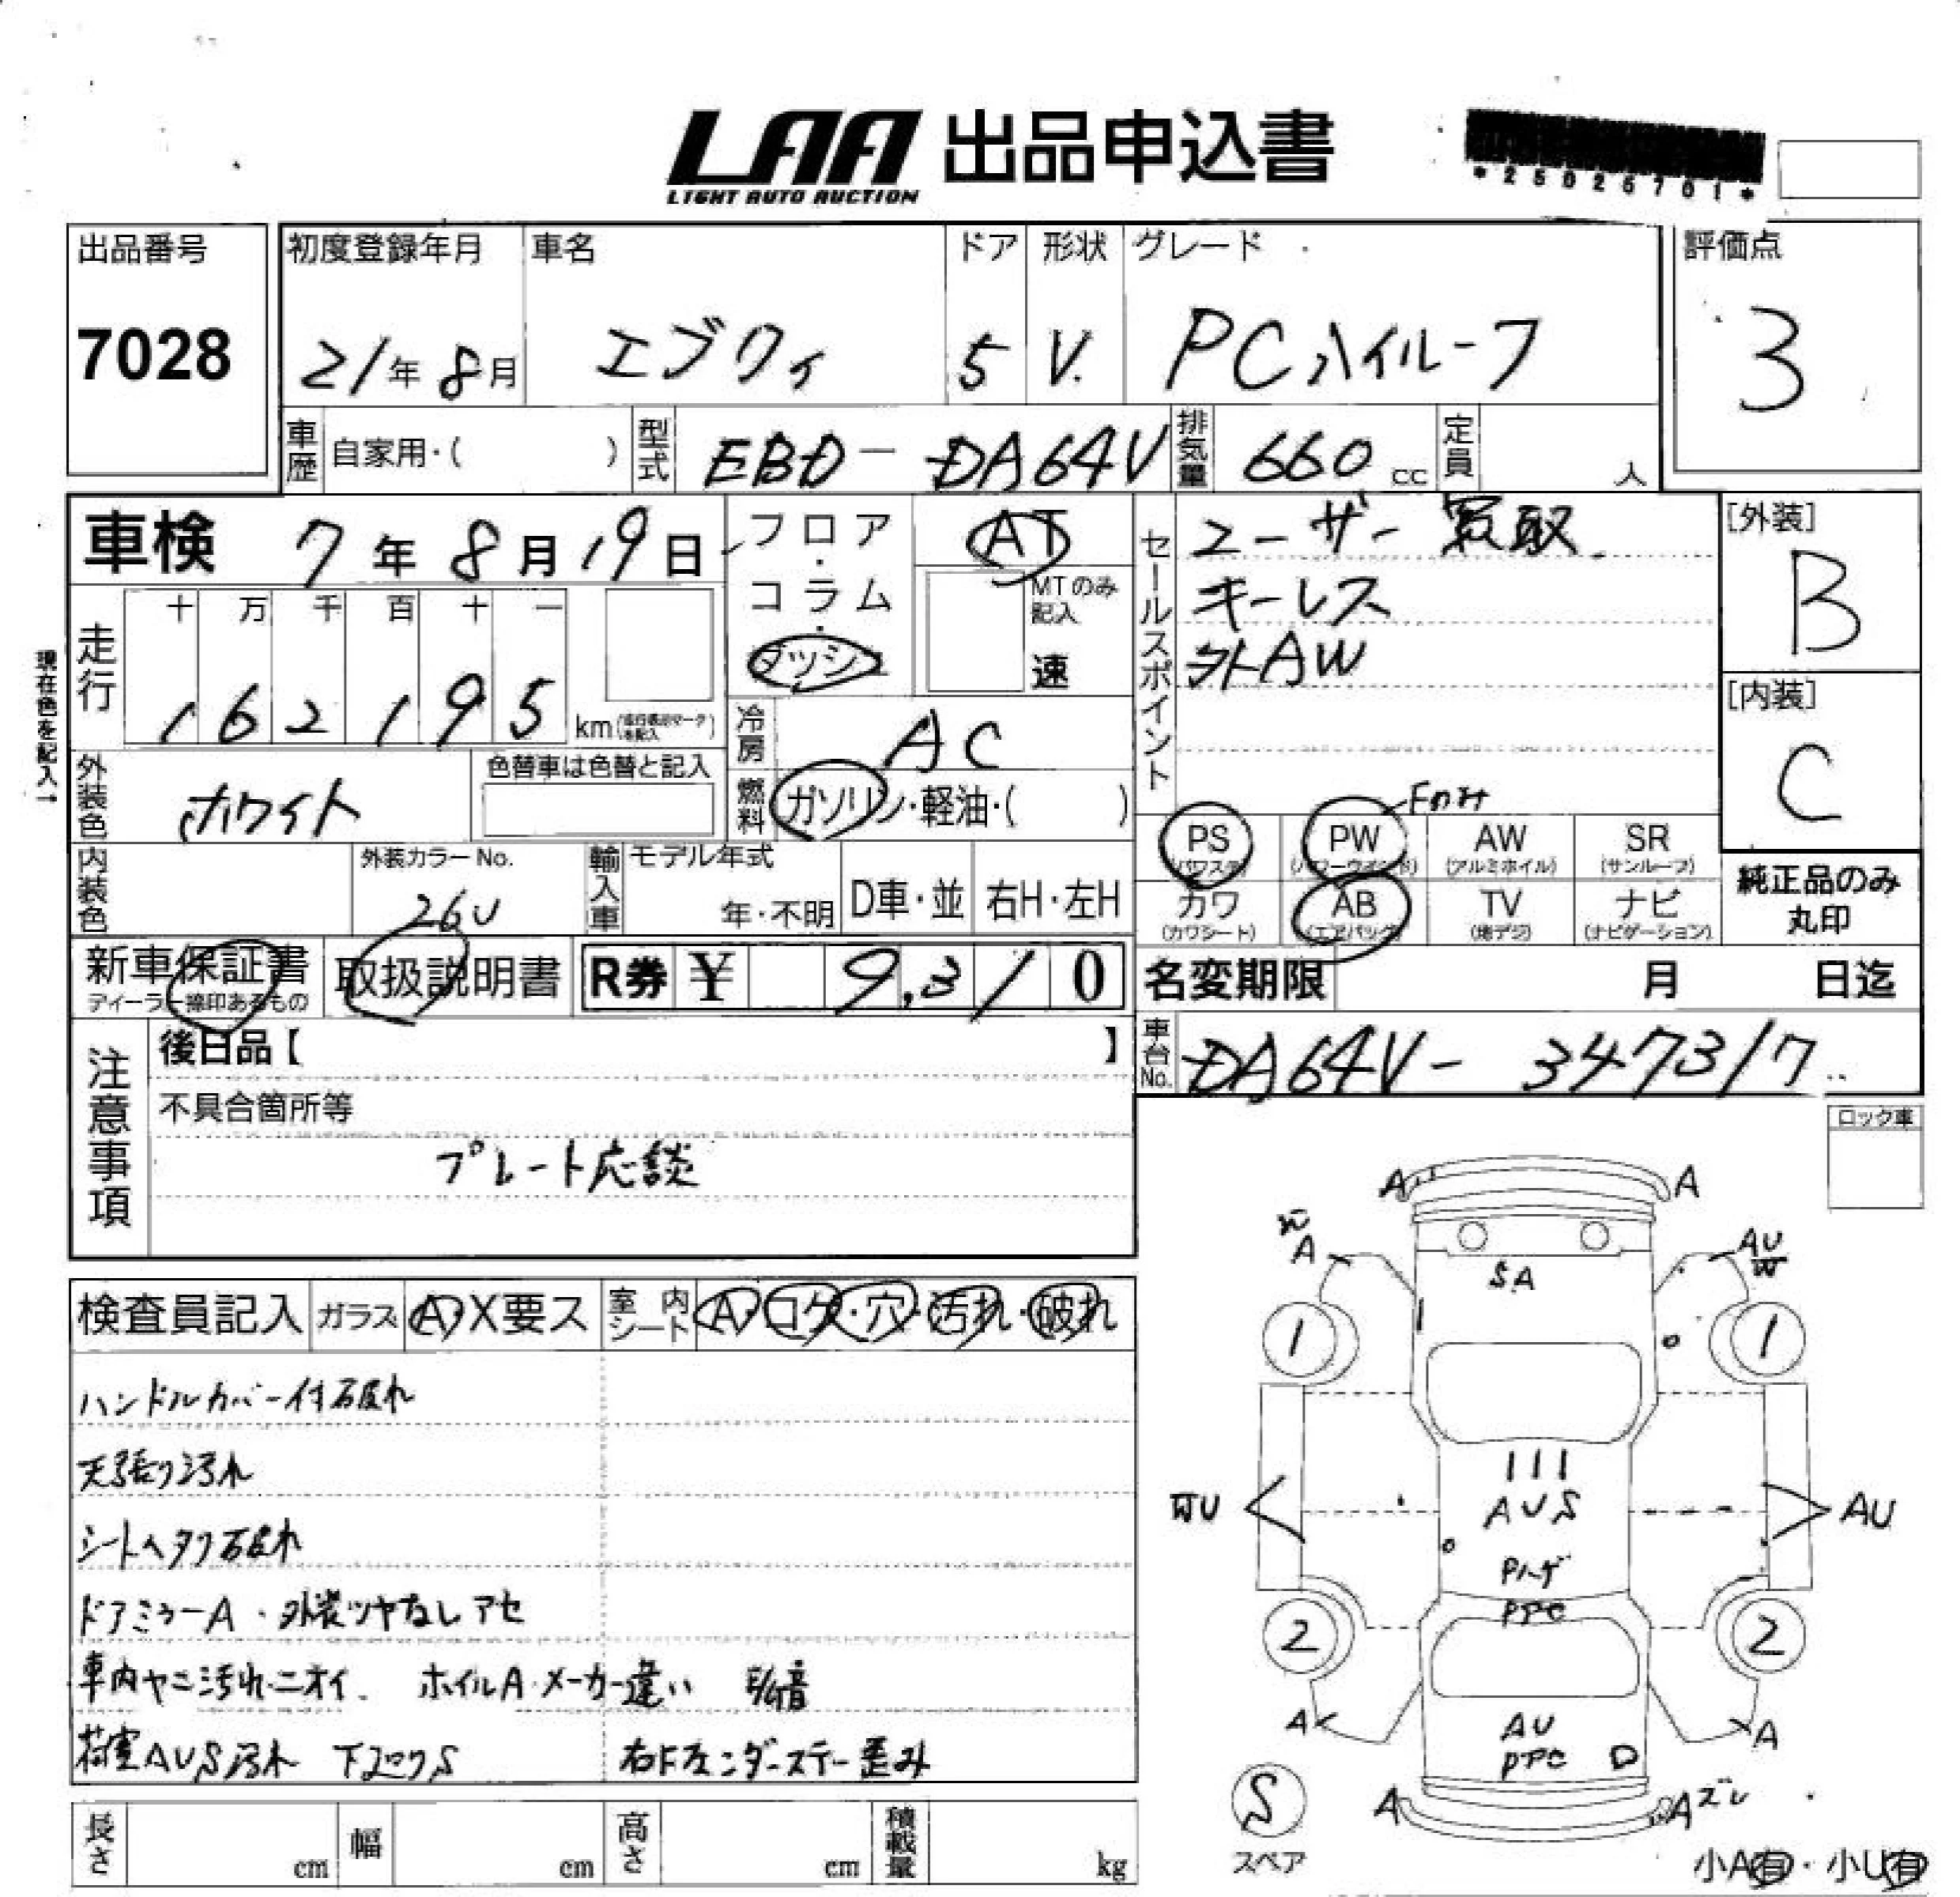 LAA 出品申込書
LIGHT AUTO AUCTION
*25026701*
出品番号
7028
初度登録年月
21年8月
車名
エブリィ
ドア
5
形状
V.
グレード
PCハイルーフ
評価点
3
車歴 自家用・( )
型式 EBD-DA64V
排気量 660cc
定員 人
車検 7年8月19日
フロア・コラム・ダッシュ
AT
MTのみ記入
速
セールスポイント
ユーザー買取
キーレス
外AW
[外装]
B
[内装]
C
現在色を記入→
走行
十 万 千 百 十 一
1 6 2 1 9 5 km
冷房 AC
燃料 ガソリン・軽油・( )
外装色 ホワイト
色替車は色替と記入
Fのみ
PS (パワステ)
PW (パワーウインド)
AW (アルミホイル)
SR (サンルーフ)
カワ (カワシート)
AB (エアバック)
TV (地デジ)
ナビ (ナビゲーション)
純正品のみ丸印
内装色
外装カラーNo.
26U
輸入車
モデル年式
年・不明
D車・並
右H・左H
新車保証書
ディーラー捺印あるもの
取扱説明書
R券 ¥ 9,310
名変期限 月 日迄
車台No. DA64V-347317
注意事項
後日品【 】
不具合箇所等
プレート応談
ロック車
検査員記入
ガラス A・X要ス
室内シート A・コゲ・穴・汚れ・破れ
ハンドルカバー付破れ
天張り汚れ
シートヘタリ破れ
ドアミラーA・外装ツヤなしアセ
車内ヤニ汚れ・ニオイ. ホイルA・メーカー違い
荷室AUS汚れ 下回りS 右Fフェンダーステー歪み
A A
A AU W
SA
1 1
AUS
AU
Pハゲ
PPC
2 2
A AU A
PPC D
A A ズレ
S
スペア
小A有・小U有
長さ cm
幅 cm
高さ cm
積載量 kg